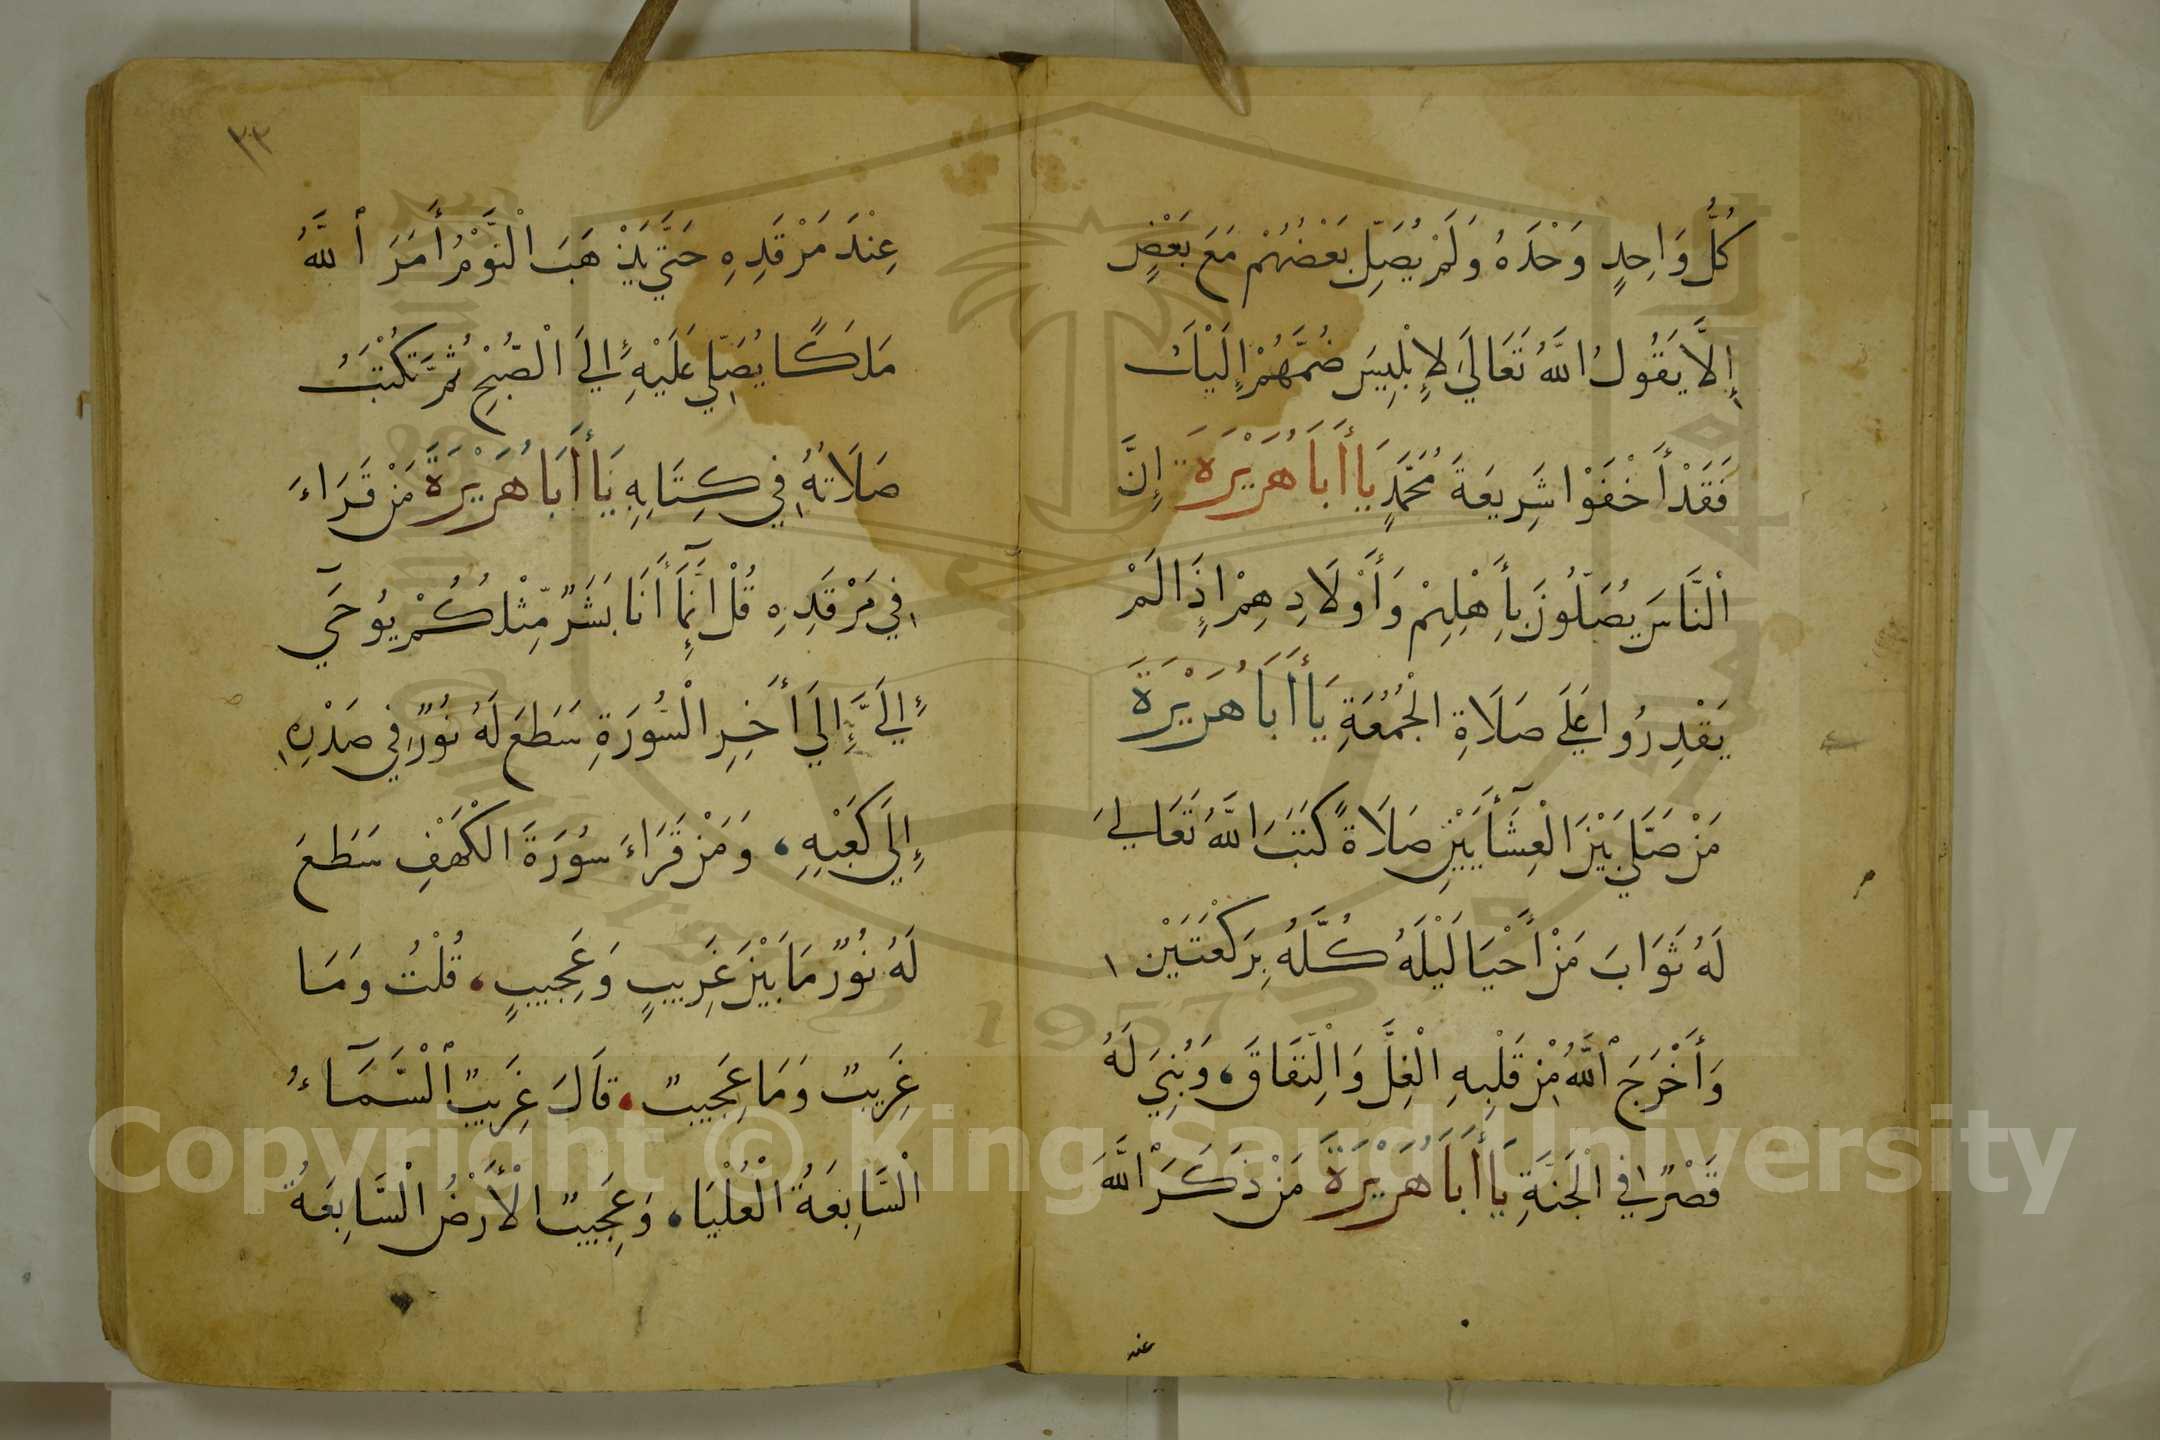 كُلُّ وَاحِدٍ وَحْدَهُ وَلَمْ يُصَلِّ بَعْضُهُمْ مَعَ بَعْضٍ
إِلَّا يَقُولُ اللَّهُ تَعَالَى لِإِبْلِيسَ ضُمَّهُمْ إِلَيْكَ
فَقَدْ أَخْفَوْا شَرِيعَةَ مُحَمَّدٍ يَا أَبَا هُرَيْرَةَ إِنَّ
الْنَّاسَ يُصَلُّونَ بِأَهْلِهِمْ وَأَوْلَادِهِمْ إِذَا لَمْ
يَقْدِرُوا عَلَى صَلَاةِ الْجُمُعَةِ يَا أَبَا هُرَيْرَةَ
مَنْ صَلَّى بَيْنَ الْعِشَآأَيَيْنِ صَلَاةً كَتَبَ اللَّهُ تَعَالَى
لَهُ ثَوَابَ مَنْ أَحْيَا لَيْلَهُ كُلَّهُ بِرَكْعَتَيْنِ
وَأَخْرَجَ ٱللَّهُ مِنْ قَلْبِهِ الْغِلَّ وَالْنِّفَاقَ، وَبُنِيَ لَهُ
قَصْرٌ فِي الْجَنَّةِ يَا أَبَا هُرَيْرَةَ مَنْ ذَكَرَ اللَّهَ
عند
٣٣
عِنْدَ مَرْقَدِهِ حَتَّى يَذْهَبَ الْنَّوْمُ أَمَرَ ٱللَّهُ
مَلَكًا يُصَلِّي عَلَيْهِ إِلَى الْصُّبْحِ ثُمَّ تُكْتَبُ
صَلَاتُهُ فِي كِتَابِهِ يَا أَبَا هُرَيْرَةَ مَنْ قَرَاءَ
فِي مَرْقَدِهِ قُلْ إِنَّمَآ أَنَا بَشَرٌ مِّثْلُكُمْ يُوحَىٓ
إِلَيَّ إِلَى أَخِرِ الْسُّورَةِ سَطَعَ لَهُ نُورٌ فِي صَدْرِهِ
إِلَى كَعْبِهِ، وَمَنْ قَرَاءَ سُورَةَ الْكَهْفِ سَطَعَ
لَهُ نُورٌ مَا بَيْنَ غَرِيبٍ وَعَجِيبٍ، قُلْتُ وَمَا
غَرِيبٌ وَمَا عَجِيبٌ، قَالَ غَرِيبٌ ٱلْسَّمَآءُ
الْسَّابِعَةُ الْعُلْيَا، وَعَجِيبٌ الْأَرْضُ الْسَّابِعَةُ
Copyright © King Saud University
1957